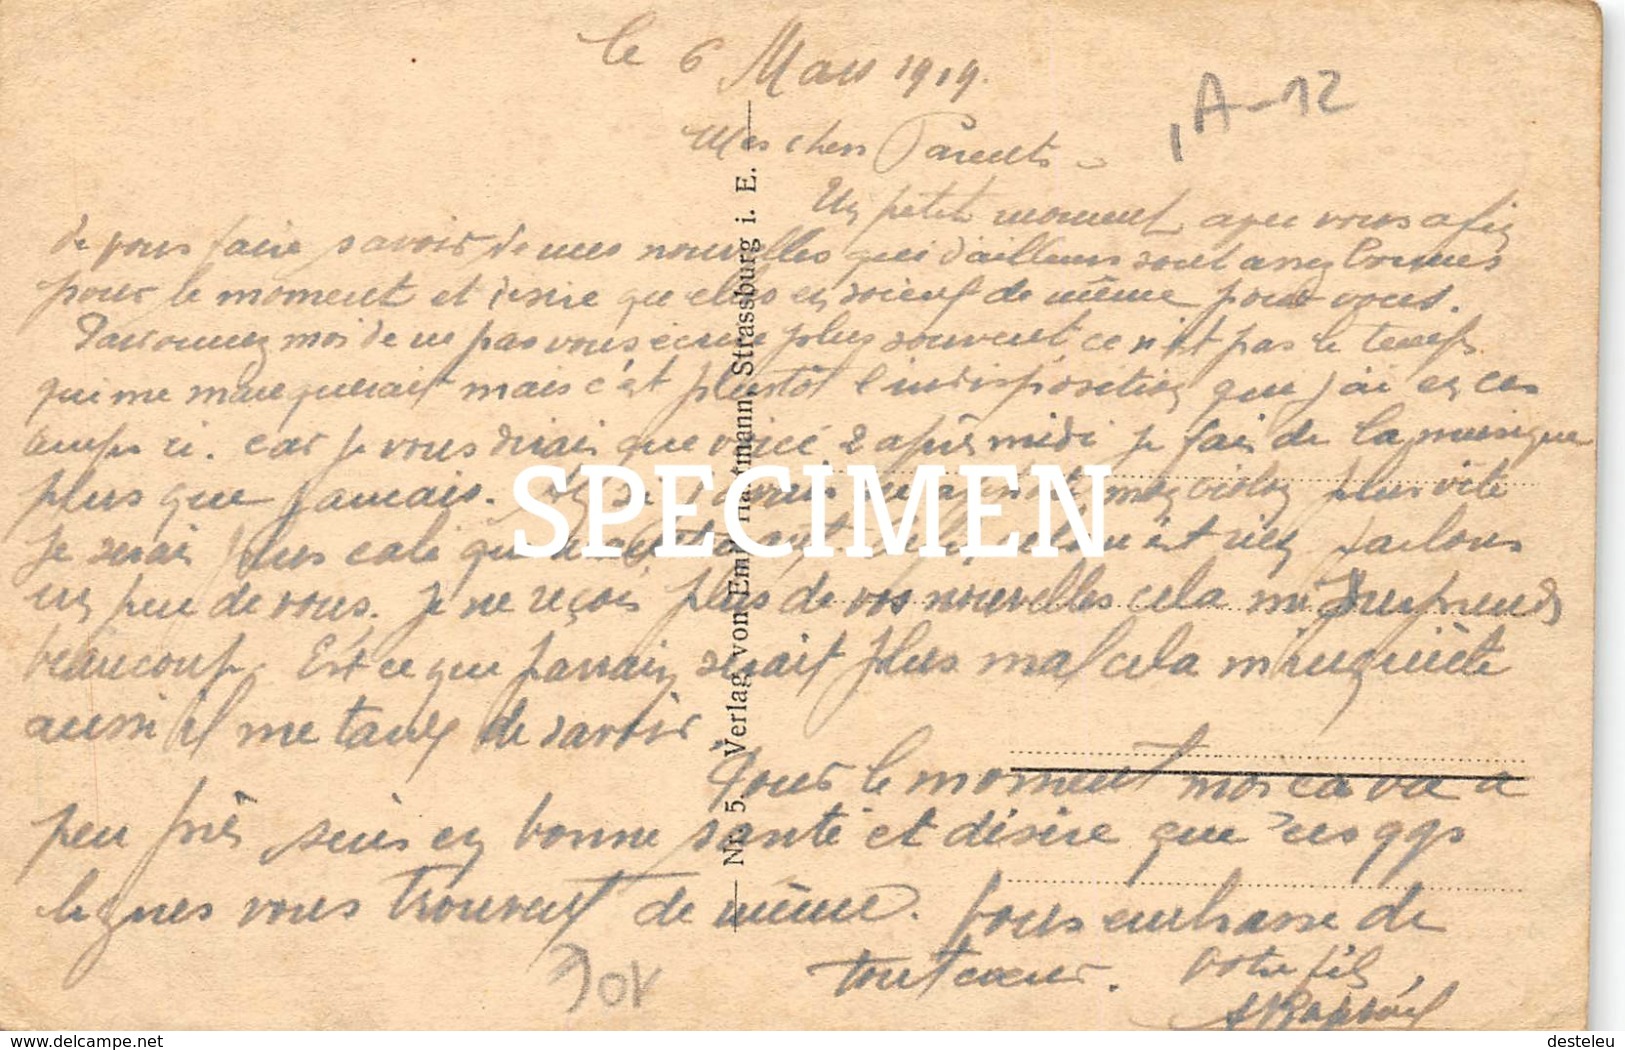 le 6 Mars 1919.
A-12
Mes chers Parents
Un petit moment aper vous afin
de vous faire savoir de mes nouvelles qui d'ailleurs sont assez bonnes
pour le moment et desire qu'elles en soient de même pour vous.
Pardonnez moi de ne pas vous écrire plus souvent ce n'est pas le temps
qui me manquerait mais c'est plustôt l'indisposition que j'ai en ces
temps ci. car je vous dirais que voici 2 après midi je fais de la musique
plus que jamais. mon violon plus vite
Je serai plus calé que rien parlons
un peu de vous. Je ne reçois plus de vos nouvelles cela me surprend
beaucoup. Est ce que parrain serait plus mal cela m'inquiète
aussi il me tarde de savoir.
Pour le moment moi ca va a
peu près suis en bonne santé et désire que ces qqs
lignes vous trouvent de même. Vous embrasse de
tout coeur. Votre fils,
JOK
Nr. 5. Verlag von Emil Hartmann, Strassburg i. E.
SPECIMEN
delcampe.net
desteleu